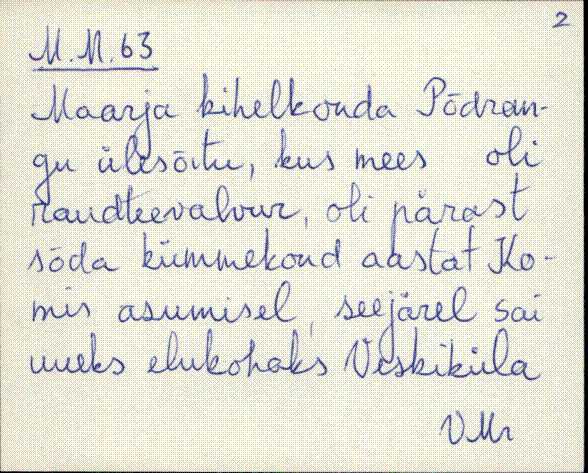 2
M. M. 63
Maarja kihelkonda Põdran-
gu ülesõitu, kus mees oli
raudteevalvur, oli pärast
sõda kümmekond aastat Ko-
mis asumisel, seejärel sai
uueks elukohaks Veskiküla
VMr